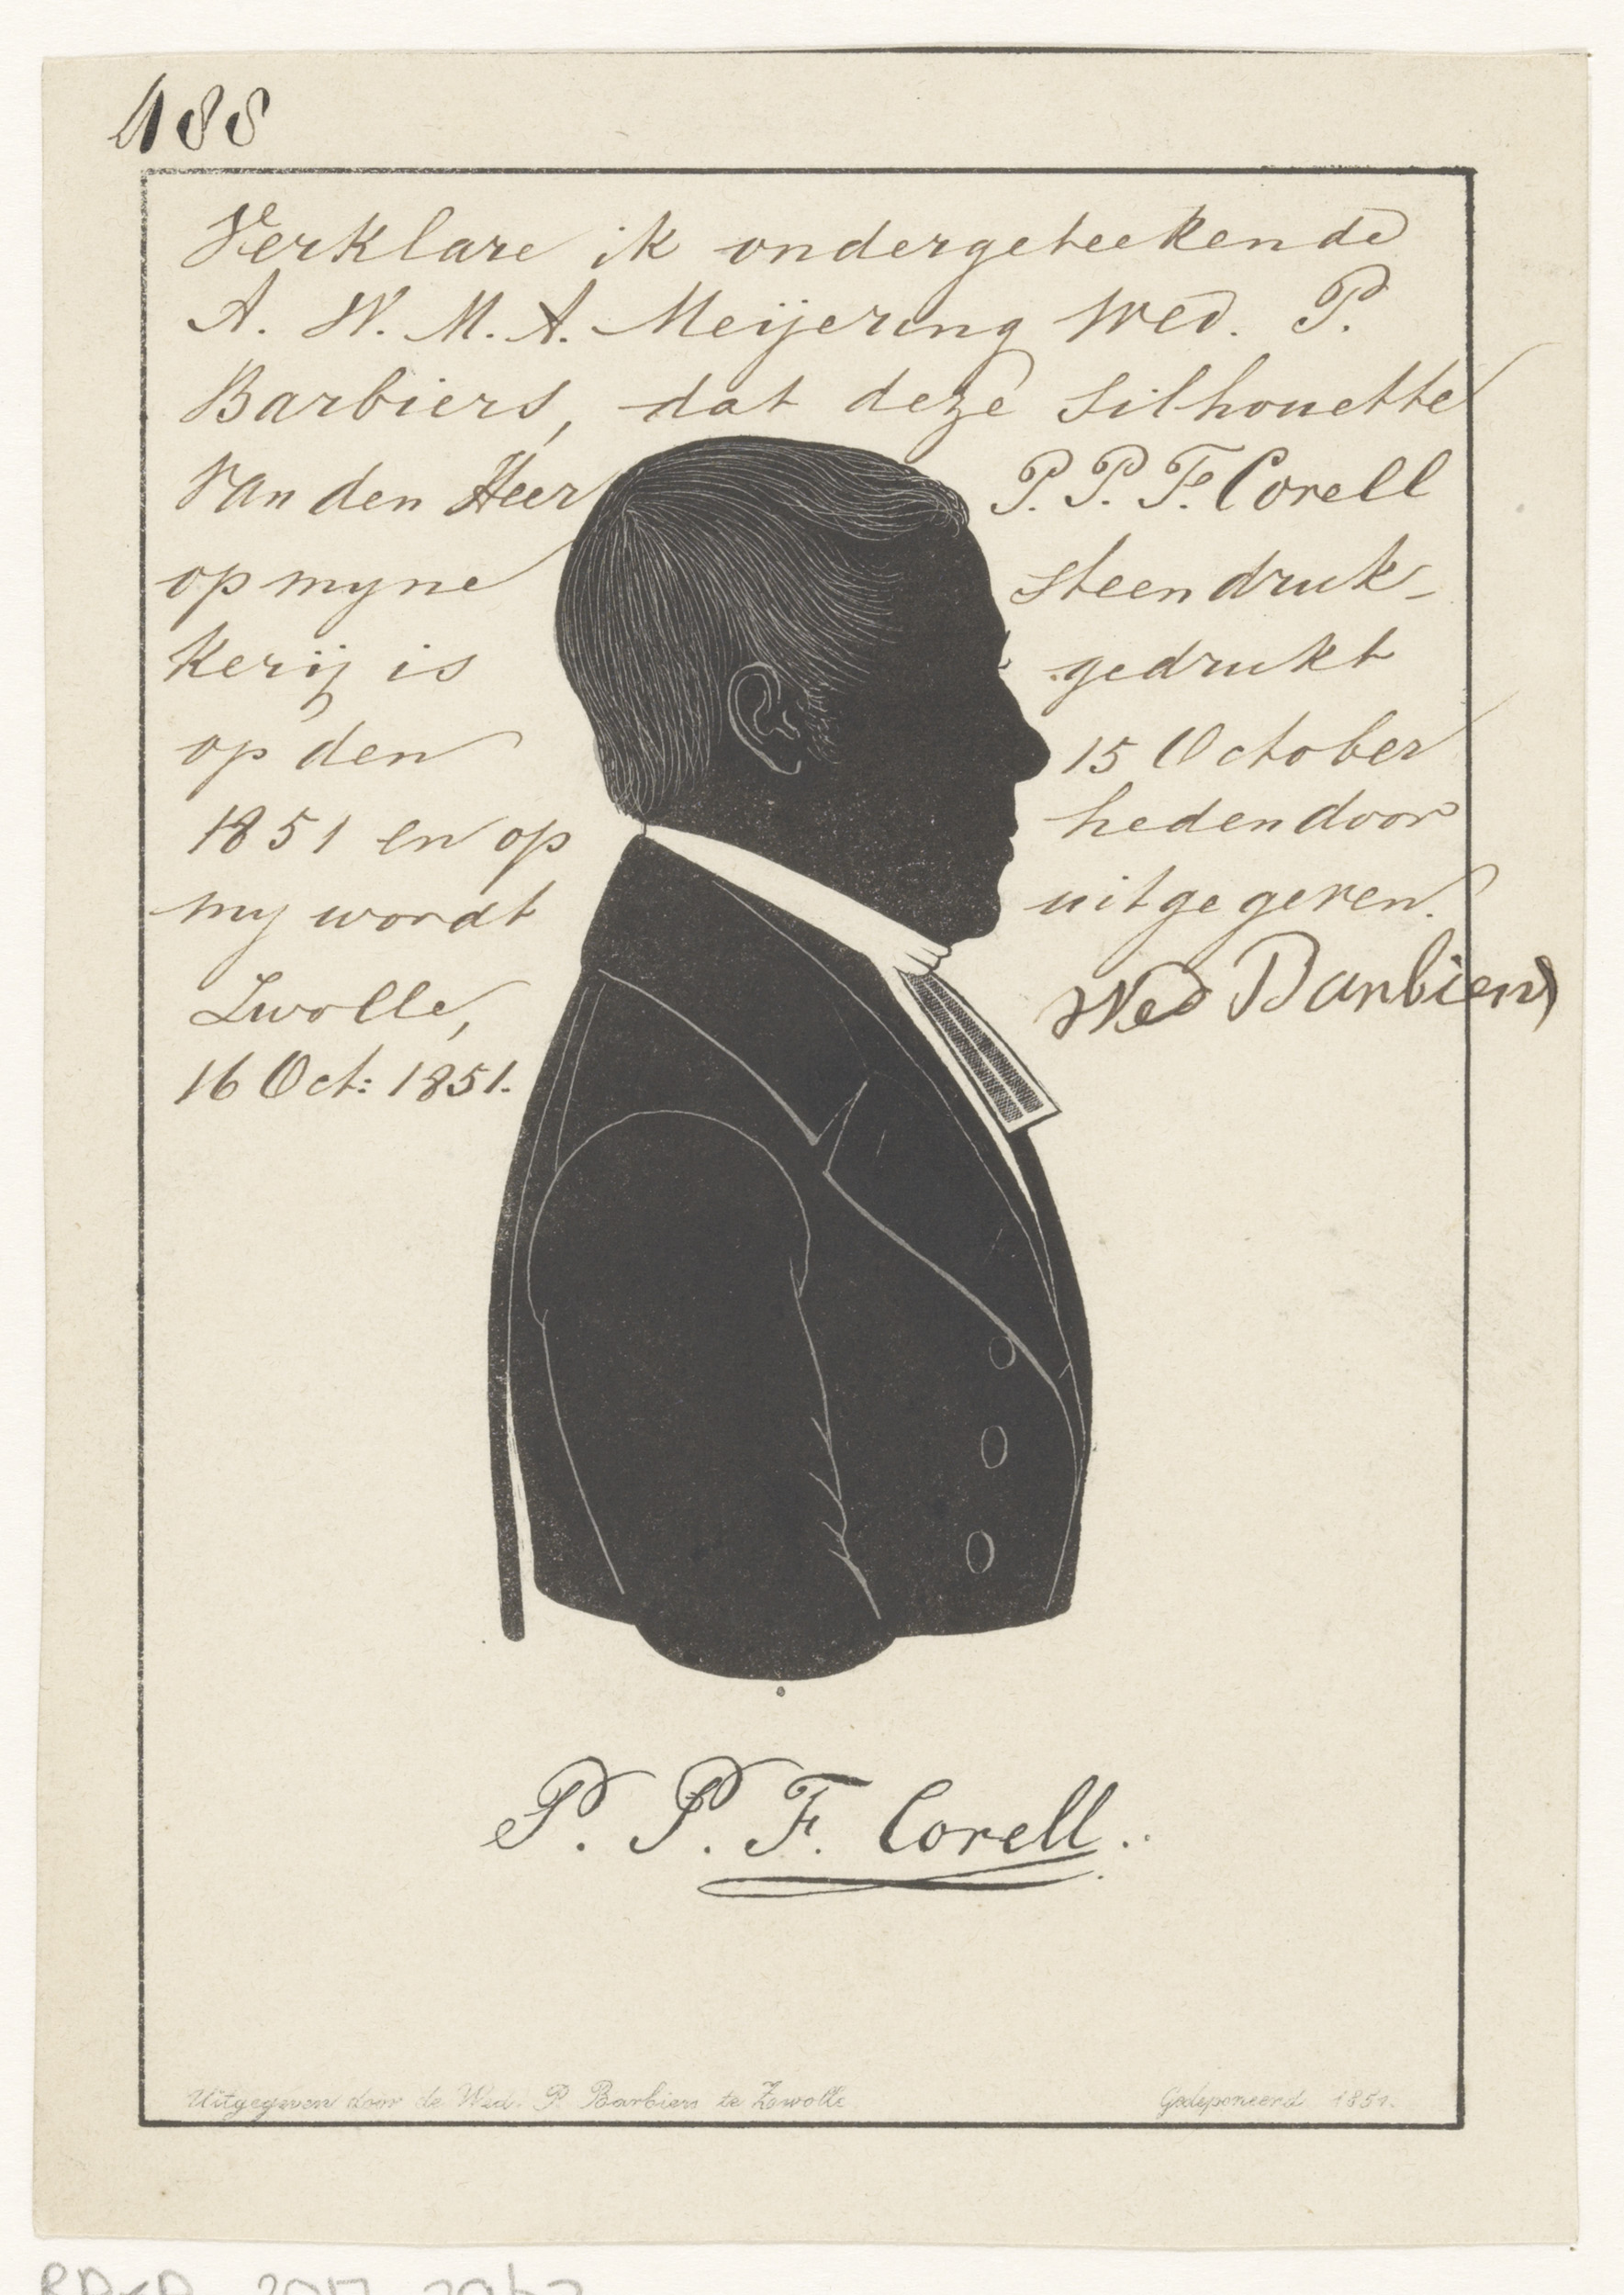 488
Verklare ik ondergeteekende
A. W. M. A. Meijering Wed. P.
Barbiers, dat deze Silhouette
Van den Heer P. P. F. Corell
op myne steendruk-
kerij is gedrukt
op den 15 October
1851 en op heden door
my wordt uitgegeven.
Zwolle, Wed Barbiers
16 Oct: 1851.
P. P. F. Corell.
Uitgegeven door de Wed. P. Barbiers te Zwolle Gedeponeerd 1851.